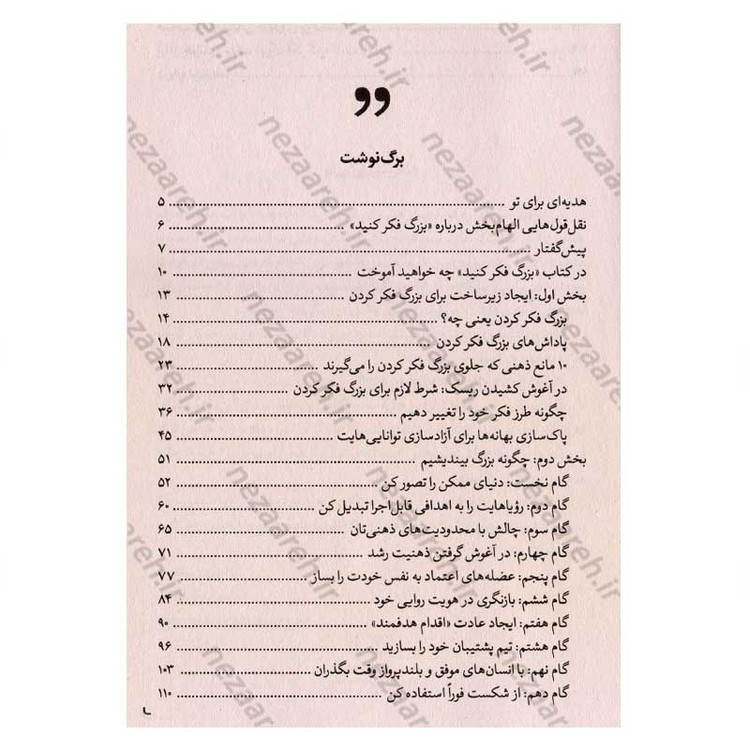 برگ‌نوشت
هدیه‌ای برای تو ۵
نقل‌قول‌هایی الهام‌بخش درباره «بزرگ فکر کنید» ۶
پیش‌گفتار ۷
در کتاب «بزرگ فکر کنید» چه خواهید آموخت ۱۰
بخش اول: ایجاد زیرساخت برای بزرگ فکر کردن ۱۳
بزرگ فکر کردن یعنی چه؟ ۱۴
پاداش‌های بزرگ فکر کردن ۱۸
۱۰ مانع ذهنی که جلوی بزرگ فکر کردن را می‌گیرند ۲۳
در آغوش کشیدن ریسک: شرط لازم برای بزرگ فکر کردن ۳۲
چگونه طرز فکر خود را تغییر دهیم ۳۶
پاک‌سازی بهانه‌ها برای آزادسازی توانایی‌هایت ۴۵
بخش دوم: چگونه بزرگ بیندیشیم ۵۱
گام نخست: دنیای ممکن را تصور کن ۵۲
گام دوم: رؤیاهایت را به اهدافی قابل‌اجرا تبدیل کن ۶۰
گام سوم: چالش با محدودیت‌های ذهنی‌تان ۶۵
گام چهارم: در آغوش گرفتن ذهنیت رشد ۷۱
گام پنجم: عضله‌های اعتماد به نفس خودت را بساز ۷۷
گام ششم: بازنگری در هویت روایی خود ۸۴
گام هفتم: ایجاد عادت «اقدام هدفمند» ۹۰
گام هشتم: تیم پشتیبان خود را بسازید ۹۶
گام نهم: با انسان‌های موفق و بلندپرواز وقت بگذران ۱۰۳
گام دهم: از شکست فوراً استفاده کن ۱۱۰
nezaareh.ir